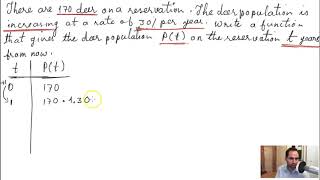 There are 170 deer on a reservation. The deer population is
increasing at a rate of 30% per year. Write a function
that gives the deer population P(t) on the reservation t years
from now.
t P(t)
+1 0 170
1 170 · 1.30